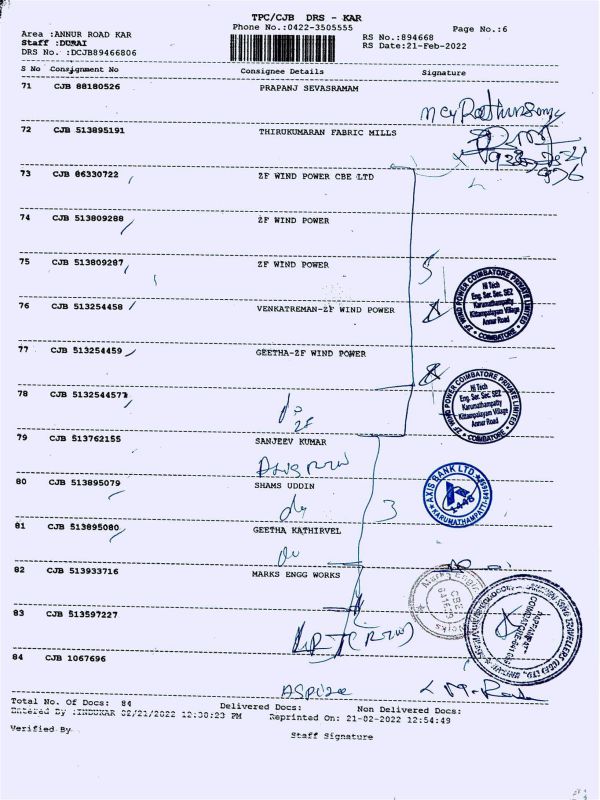 TPC/CJB DRS - KAR
Phone No.:0422-3505555
Page No.:6
Area :ANNUR ROAD KAR
Staff :DURAI
DRS No. :DCJB89466806
RS No.:894668
RS Date:21-Feb-2022
S No Consignment No Consignee Details Signature
71 CJB 88180526 PRAPANJ SEVASRAMAM
72 CJB 513895191 THIRUKUMARAN FABRIC MILLS
73 CJB 86330722 ZF WIND POWER CBE LTD
74 CJB 513809288 ZF WIND POWER
75 CJB 513809287 ZF WIND POWER
5
76 CJB 513254458 VENKATREMAN-ZF WIND POWER
ZF WIND POWER COIMBATORE PRIVATE LIMITED
Hi Tech
Eng. Ser. Sec. SEZ
Karumathampatty
Kittampalayam Village
Annur Road
COIMBATORE
77 CJB 513254459 GEETHA-ZF WIND POWER
78 CJB 513254457
ZF
ZF WIND POWER COIMBATORE PRIVATE LIMITED
Hi Tech
Eng. Ser. Sec. SEZ
Karumathampatty
Kittampalayam Village
Annur Road
COIMBATORE
79 CJB 513762155 SANJEEV KUMAR
80 CJB 513895079 SHAMS UDDIN
AXIS BANK LTD
KARUMATHAMPATTI
3
81 CJB 513895080 GEETHA KATHIRVEL
82 CJB 513933716 MARKS ENGG WORKS
83 CJB 513597227
84 CJB 1067696
ASpize
Total No. Of Docs: 84 Delivered Docs: Non Delivered Docs:
Entered By :INDUKAR 02/21/2022 12:30:23 PM Reprinted On: 21-02-2022 12:54:49
Verified By Staff Signature